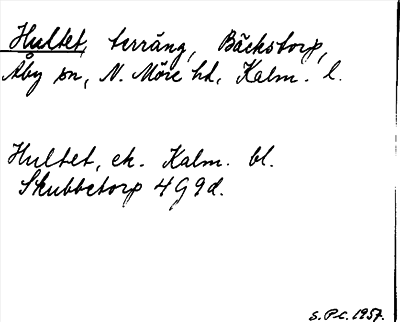 Hultet, terräng, Bäckstorp,
Åby sn, N. Möre hd, Kalm. l.
Hultet, ek. Kalm. bl.
Skubbetorp 4 G 9 d.
S. P-t. 1957.